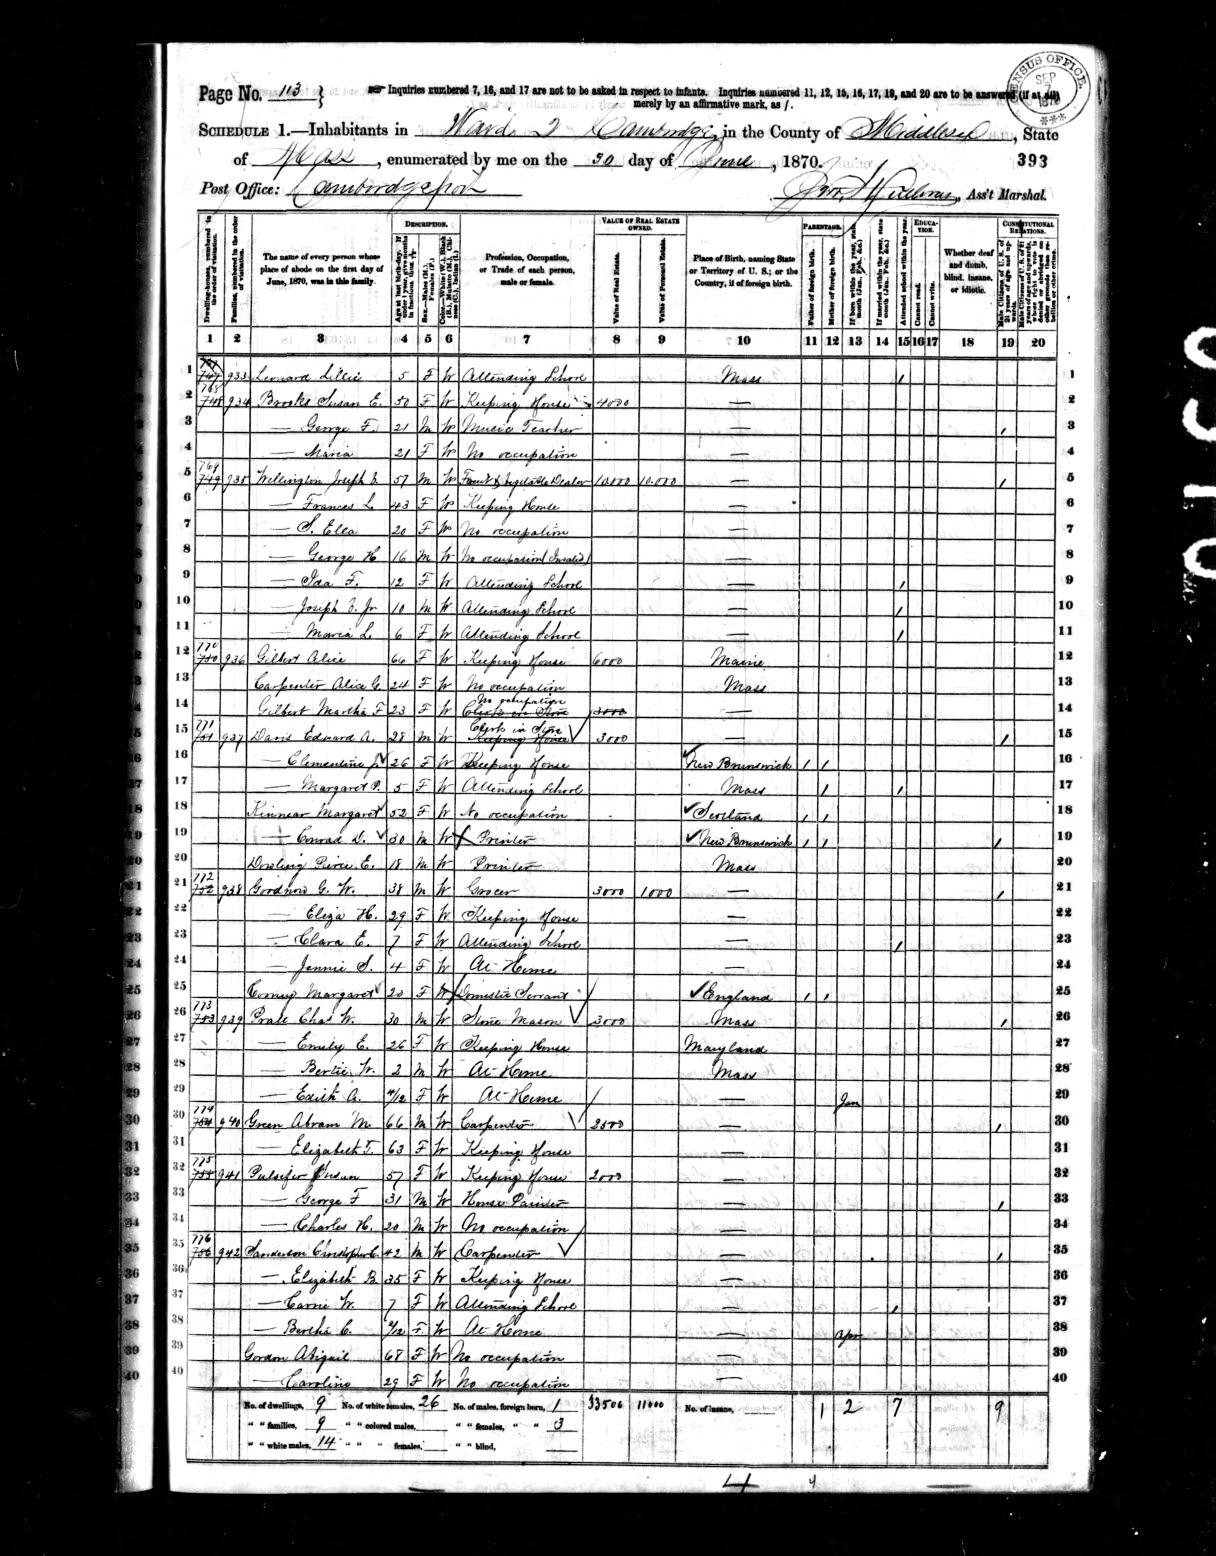 Page No. 113 } Inquiries numbered 7, 16, and 17 are not to be asked in respect to infants. Inquiries numbered 11, 12, 15, 16, 17, 19, and 20 are to be answered (if at all)
merely by an affirmative mark, as /.
CENSUS OFFICE SEP 7 1870 ***
SCHEDULE 1.—Inhabitants in Ward 2 Cambridge, in the County of Middlesex, State
of Mass, enumerated by me on the 30 day of June, 1870. 393
Post Office: Cambridgeport Ass't Marshal.
Dwelling-houses, numbered in the order of visitation.
Families, numbered in the order of visitation.
The name of every person whose place of abode on the first day of June, 1870, was in this family.
DESCRIPTION.
Age at last birth-day.
Sex.—Males (M.), Females (F.)
Profession, Occupation, or Trade of each person, male or female.
VALUE OF REAL ESTATE OWNED.
Value of Real Estate.
Value of Personal Estate.
Place of Birth, naming State or Territory of U. S.; or the Country, if of foreign birth.
PARENTAGE.
Father of foreign birth.
Mother of foreign birth.
Attended school within the year.
EDUCATION.
Cannot read.
Cannot write.
Whether deaf and dumb, blind, insane, or idiotic.
CONSTITUTIONAL RELATIONS.
1 2 3 4 5 6 7 8 9 10 11 12 13 14 15 16 17 18 19 20
1 933 Leonard Lillie 5 F W Attending School Mass / 1
2 768 748 934 Brooks Susan E. 50 F W Keeping House 4000 — 2
3 — George F. 21 M W Music Teacher — / 3
4 — Maria 21 F W No occupation — 4
5 769 749 935 Wellington Joseph E 57 M W Fruit & Vegetable Dealer 10.000 10.000 — / 5
6 — Frances L. 43 F W Keeping House — 6
7 — S. Ella 20 F W No occupation — 7
8 — George H 16 M W No occupation (Invalid) — 8
9 — Ida F. 12 F W Attending School — / 9
10 — Joseph E. Jr 10 M W Attending School — / 10
11 — Maria L. 6 F W Attending School — / 11
12 770 750 936 Gilbert Alice 66 F W Keeping House 6000 Maine 12
13 Carpenter Alice G. 24 F W No occupation Mass 13
14 Gilbert Martha F 23 F W No occupation Clerk in Store 3000 — 14
15 771 751 937 Davis Edward A. 28 M W Clerk in Store Keeping House 3000 — / 15
16 — Clementine J. 26 F W Keeping House New Brunswick / / 16
17 — Margaret P. 5 F W Attending School Mass / / 17
18 Kinnear Margaret 52 F W No occupation Scotland / / 18
19 — Conrad D. 30 M W Printer New Brunswick / / / 19
20 Dowling Pierce E. 18 M W Printer Mass 20
21 772 752 938 Goodnow G. W. 38 M W Grocer 3000 1000 — / 21
22 — Eliza H. 29 F W Keeping House — 22
23 — Clara E. 7 F W Attending School — / 23
24 — Jennie S. 4 F W At Home — 24
25 Margaret 20 F W Domestic Servant England / / 25
26 773 753 939 Chas W. 30 M W Stone Mason 3000 Mass / 26
27 — Emily E. 26 F W Keeping House Maryland 27
28 — Bertie W. 2 M W At Home Mass 28
29 — Edith A. /12 F W At Home — Jan 29
30 774 754 940 Green Abram M. 66 M W Carpenter 2500 — / 30
31 — Elizabeth T. 63 F W Keeping House — 31
32 775 755 941 Pulsifer Susan 57 F W Keeping House 2000 — 32
33 — George F 31 M W House Painter — / 33
34 — Charles H. 20 M W No occupation — 34
35 776 756 942 Sanderson Christopher C. 42 M W Carpenter — / 35
36 — Elizabeth B 35 F W Keeping House — 36
37 — Carrie W. 7 F W Attending School — / 37
38 — Bertha C. 2/12 F W At Home — Apr 38
39 Gordon Abigail 68 F W No occupation — 39
40 — Caroline 29 F W No occupation — 40
No. of dwellings, 9 No. of white females, 26 No. of males, foreign born, 1 33500 11000 No. of insane, 1 2 7 9
" " families, 9 " " colored males, " " females, " " 3
" " white males, 14 " " " females, " " blind,
4 4